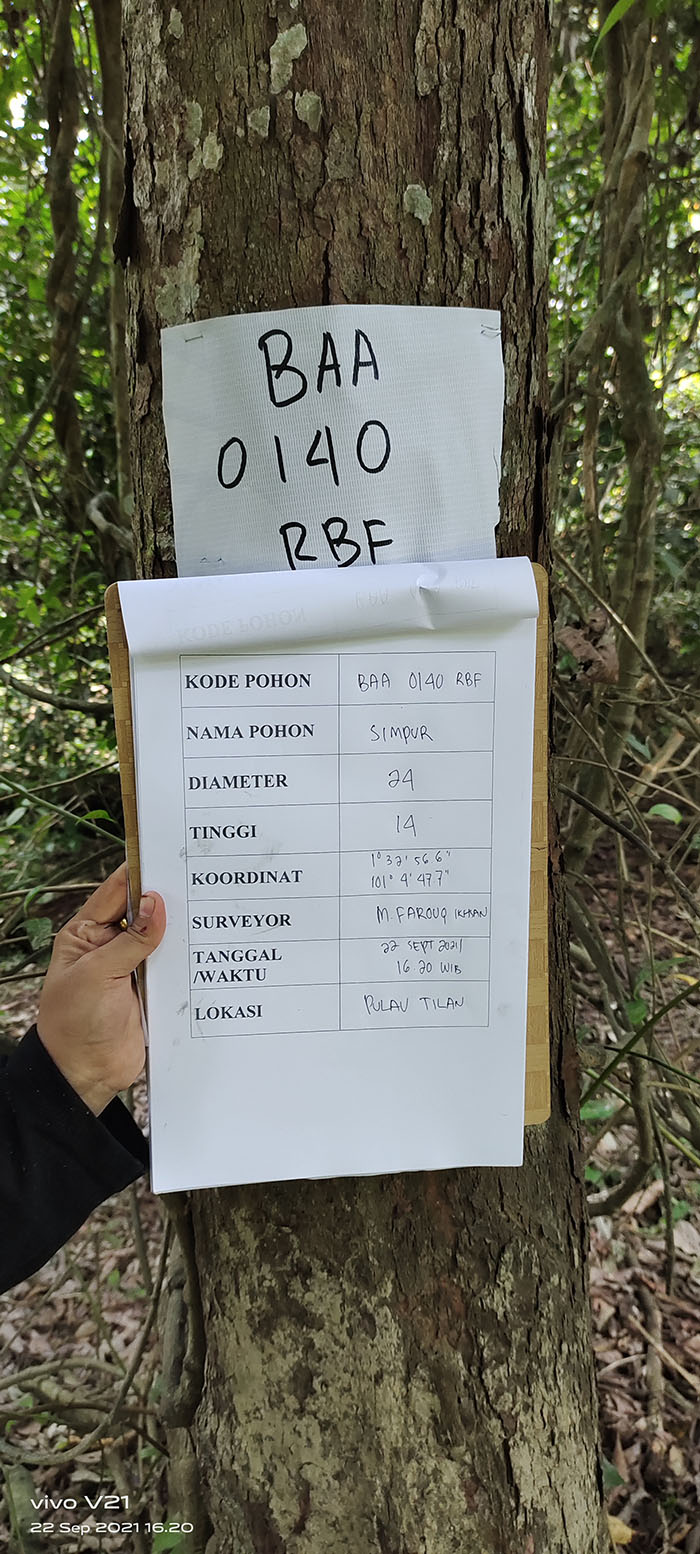 BAA
0140
RBF
KODE POHON BAA 0140 RBF
NAMA POHON SIMPUR
DIAMETER 24
TINGGI 14
KOORDINAT 1° 32' 56.6"
101° 4' 47.7"
SURVEYOR M. FAROUQ IKHSAN
TANGGAL 22 SEPT 2021/
/WAKTU 16.20 WIB
LOKASI PULAU TILAN
vivo V21
22 Sep 2021 16.20